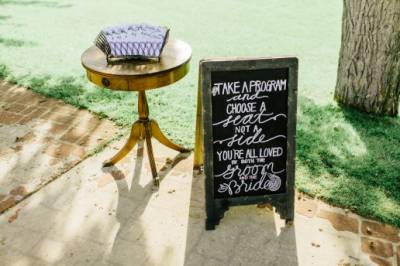 TAKE A PROGRAM
and CHOOSE A
seat
NOT A
side
YOU'RE ALL LOVED
BY BOTH THE
Groom
AND THE
Bride